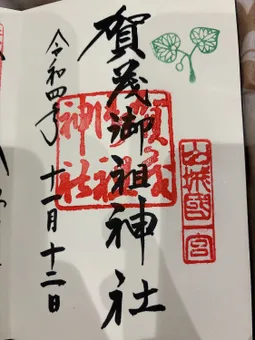 山城國一宮
賀茂御祖神社
賀茂御祖神社
令和四年十一月十二日